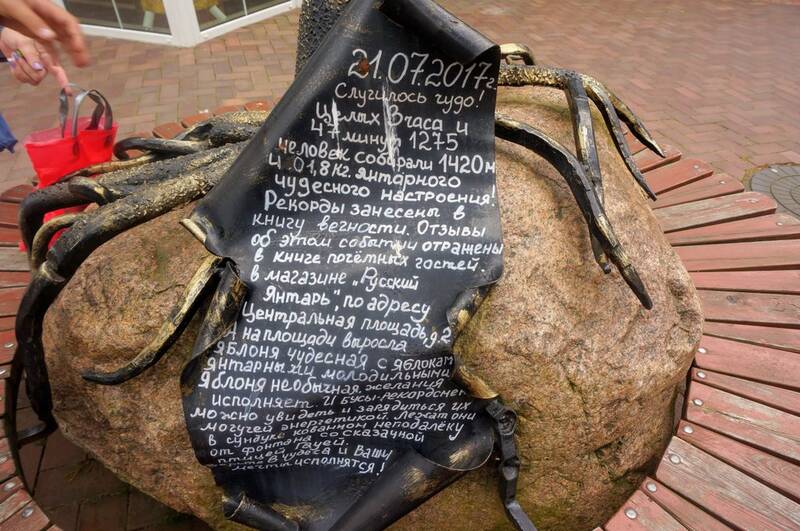 21.07.2017г.
Случилось чудо!
Целых 3 часа и
47 минут 1275
человек собирали 1420 м
и 01,8 кг. янтарного
чудесного настроения!
Рекорды занесены в
книгу вечности. Отзывы
об этом событии отражены
в книге почётных гостей
в магазине "Русский
Янтарь" по адресу
Центральная площадь, д.2
А на площади выросла
яблоня чудесная с яблоками
янтарными молодильными
Яблоня необычная желания
исполняет И Бусы-рекордсмены
можно увидеть и зарядиться их
могучей энергетикой. Лежат они
в сундуке кованном неподалёку
от фонтана со сказочной
птицей Гауей.
в чудеса и Ваши
мечты исполнятся!